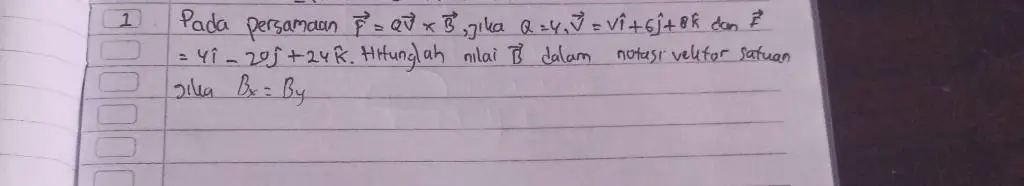 1 Pada persamaan F⃗ = QV⃗ × B⃗, jika Q = 4, V⃗ = Vî + 6ĵ + 8k̂ dan F⃗
= 4î - 20ĵ + 24k̂. Hitunglah nilai B⃗ dalam notasi vektor satuan
jika Bx = By